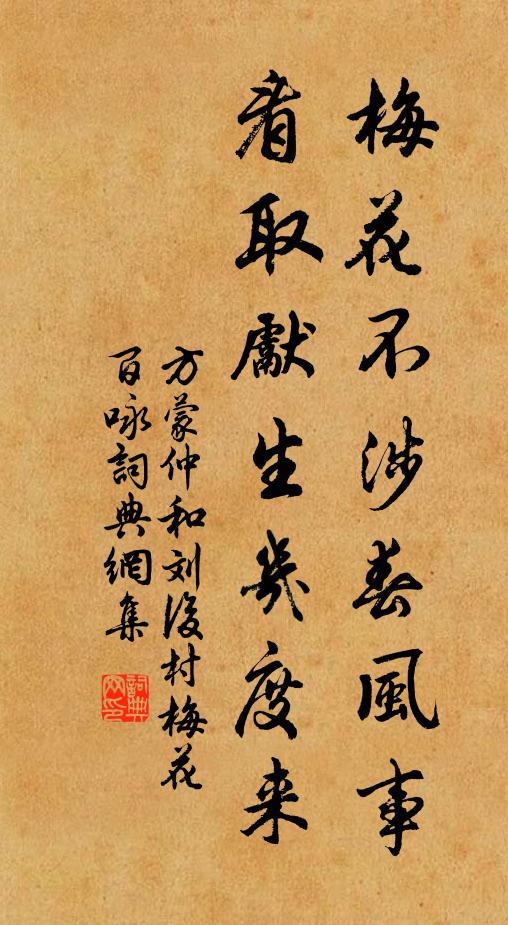 梅花不涉春風事
看取獻生幾度来
方蒙仲和刘後村梅花
百咏詞典網集
詞典网印